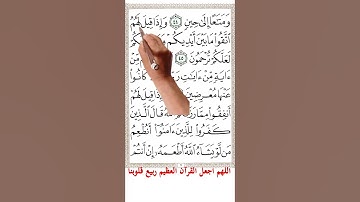 وَمَتَٰعًا إِلَىٰ حِينٍ ٤٤ وَإِذَا قِيلَ لَهُمُ
ٱتَّقُوا۟ مَا بَيْنَ أَيْدِيكُمْ
لَعَلَّكُمْ تُرْحَمُونَ ٤٥ مِّنْ
ءَايَةٍ مِّنْ ءَايَٰتِ كَانُوا۟
عَنْهَا مُعْرِضِينَ إِذَا قِيلَ لَهُمْ
أَنفِقُوا۟ مِمَّا ٱللَّهُ قَالَ ٱلَّذِينَ
كَفَرُوا۟ لِلَّذِينَ ءَامَنُوٓا۟ أَنُطْعِمُ
مَن لَّوْ يَشَآءُ ٱللَّهُ أَطْعَمَهُۥٓ إِنْ أَنتُمْ
اللهم اجعل القرآن العظيم ربيع قلوبنا